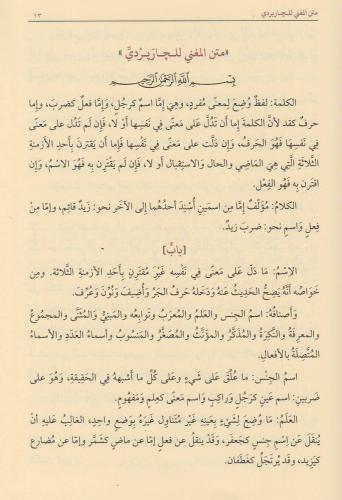 متن المغني للـچـارپـردي ١٣
«متن المغني للـچـارَپـرْديّ»
بِسْمِ اللَّهِ الرَّحْمَنِ الرَّحِيمِ
الكلمة: لفظٌ وُضِعَ لِمعنًى مُفردٍ، وهِيَ إمَّا اسمٌ كرجُلٍ، وَإمَّا فعلٌ كضربَ، وإما
حرفٌ كقد لأنَّ الكلمةَ إما أن تَدُلَّ عَلى مَعنًى في نَفسِها أوْ لا، فَإن لَم تَدُل عَلى مَعنًى
في نَفْسِها فَهُوَ الحَرفُ، وَإن دَلَّت عَلى مَعنًى في نَفْسِها فَإما أن يَقترَن بِأحدِ الأزمنةِ
الثَّلاثةِ الَّتِي هِيَ المَاضِي والحال والاستِقبال أو لا، فَإن لَم يَقترَن بِه فَهُو الاسْمُ، وَإن
اقترن بِه فَهُو الفِعْل.
الكلامُ: مُؤلَّفٌ إمَّا مِن اسمَينِ أُسنِدَ أحدُهُما إلى الآخر نحو: زَيدٌ قائِم، وإمَّا مِنْ
فِعلٍ وَاسمٍ نحو: ضَرب زَيدٌ.
[بابٌ]
الاِسْمُ: مَا دَلَّ عَلى مَعنًى في نَفْسِه غَيرَ مُقترَنٍ بِأحَدِ الأزمنةِ الثَّلاثة. ومِن
خَواصِّه أنَّهُ يَصِحُّ الحَديثُ عَنهُ وَدَخلهُ حَرفُ الجَرِّ وأُضيفَ وَنُوِّنَ وَعُرِّفَ.
وَأصنافُهُ: اسمُ الجِنسِ والعَلمُ والمُعرَبُ وتَوابِعُه والمَبنِيُّ والمُثنَّى والمجموعُ
والمَعرفَةُ والنَّكِرَةُ والمُذكَّرُ والمؤنَّثُ والمُصَغَّرُ والمَنسُوبُ وأسماءُ العَددِ والأسماءُ
المُتَّصِلَةُ بالأفعالِ.
اسمُ الجِنْس: ما عُلِّقَ عَلَى شَيءٍ وعَلى كُلِّ ما أشبههُ في الحَقيقةِ، وَهُوَ على
ضَربينِ: اسمِ عَينٍ كرَجُلٍ وَراكِبٍ وَاسمِ مَعنًى كعِلمٍ وَمَفهُومٍ.
العَلَمُ: مَا وُضِعَ لِشَيْءٍ بِعَينِهِ غَير مُتناولٍ غَيرَهُ بِوَضعٍ واحدٍ، الغَالبُ عَليهِ أنْ
يُنقَلَ عَن اِسْمِ جِنسٍ كجَعفَر، وَقدْ ينقلُ عن فعلٍ إمَّا عن ماضٍ كشَمَّر وإما عن مُضارعٍ
كيَزِيد، وقَدْ يرتَجلُ كغَطَفان.